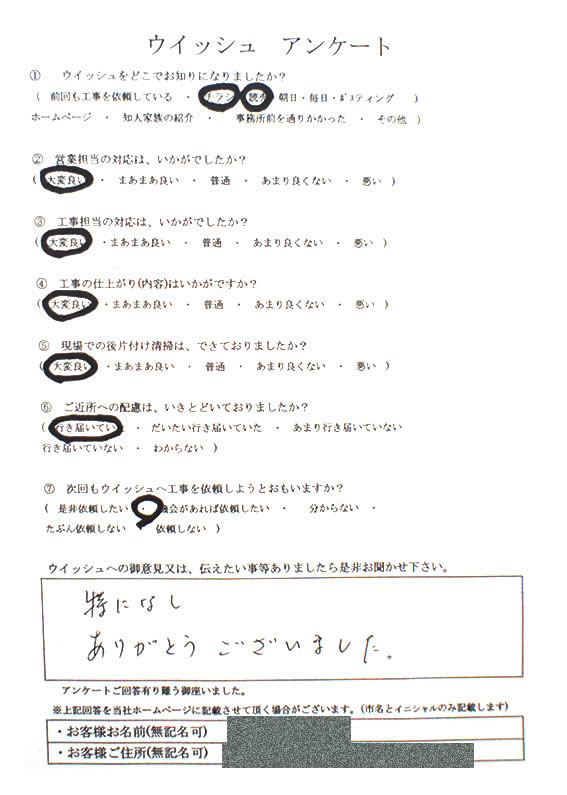 ウイッシュ アンケート
① ウイッシュをどこでお知りになりましたか？
( 前回も工事を依頼している ・ チラシ 読売 朝日・毎日・ポスティング )
ホームページ ・ 知人家族の紹介 ・ 事務所前を通りかかった ・ その他 )
② 営業担当の対応は、いかがでしたか？
( 大変良い ・ まあまあ良い ・ 普通 ・ あまり良くない ・ 悪い )
③ 工事担当の対応は、いかがでしたか？
( 大変良い ・まあまあ良い ・ 普通 ・ あまり良くない ・ 悪い )
④ 工事の仕上がり(内容)はいかがですか？
( 大変良い ・まあまあ良い ・ 普通 ・ あまり良くない ・ 悪い )
⑤ 現場での後片付け清掃は、できておりましたか？
( 大変良い ・まあまあ良い ・ 普通 ・ あまり良くない ・ 悪い )
⑥ ご近所への配慮は、いきとどいておりましたか？
( 行き届いてい ・ だいたい行き届いていた ・ あまり行き届いていない
行き届いていない ・ わからない )
⑦ 次回もウイッシュへ工事を依頼しようとおもいますか？
( 是非依頼したい ・ 機会があれば依頼したい ・ 分からない ・
たぶん依頼しない 依頼しない )
ウイッシュへの御意見又は、伝えたい事等ありましたら是非お聞かせ下さい。
特になし
ありがとう ございました。
アンケートご回答有り難う御座いました。
※上記回答を当社ホームページに記載させて頂く場合がございます。(市名とイニシャルのみ記載します)
・お客様お名前(無記名可)
・お客様ご住所(無記名可)